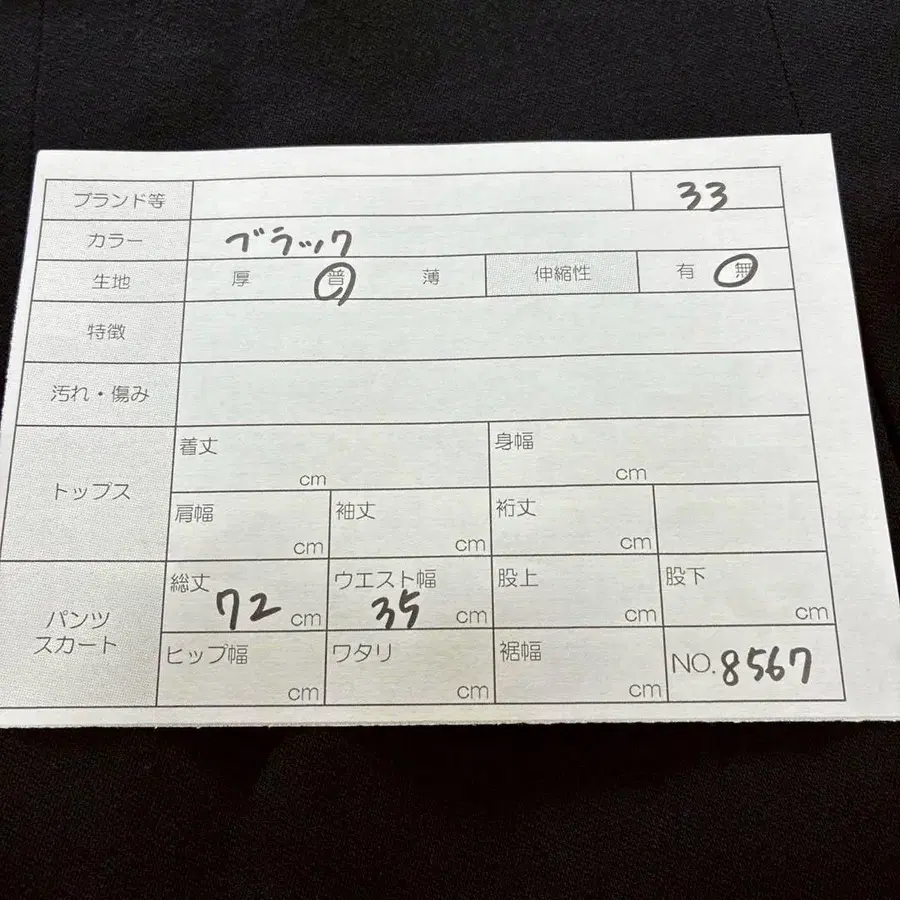 ブランド等 33
カラー ブラック
生地 厚 普 薄 伸縮性 有 無
特徴
汚れ・傷み
トップス
着丈 cm 身幅 cm
肩幅 cm 袖丈 cm 裄丈 cm
パンツ
スカート
総丈 72 cm ウエスト幅 35 cm 股上 cm 股下 cm
ヒップ幅 cm ワタリ cm 裾幅 cm NO. 8567